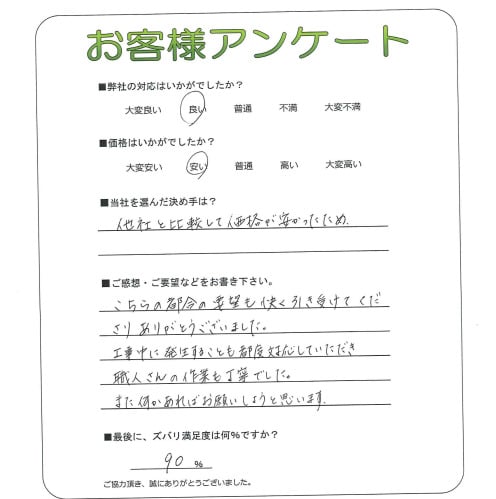 お客様アンケート
■弊社の対応はいかがでしたか?
大変良い 良い 普通 不満 大変不満
■価格はいかがでしたか?
大変安い 安い 普通 高い 大変高い
■当社を選んだ決め手は?
他社と比較して価格が安かったため.
■ご感想・ご要望などをお書き下さい。
こちらの都合の要望も快く引き受けてくだ
さりありがとうございました。
工事中に発生することも都度対応していただき
職人さんの作業も丁寧でした。
また何かあればお願いしようと思います.
■最後に、ズバリ満足度は何%ですか?
90 %
ご協力頂き、誠にありがとうございました。